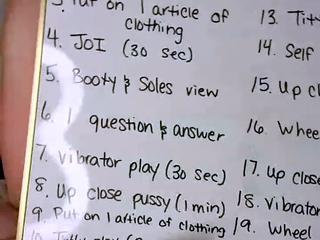 3. Put on 1 article of
clothing
4. JOI (30 sec)
5. Booty & Soles view
6. 1 question & answer
7. Vibrator play (30 sec)
8. Up close pussy (1 min)
9. Put on 1 article of clothing
10.
13.
14. Self
15. Up
16.
17. Up close
18. Vibrator
19. Wheel